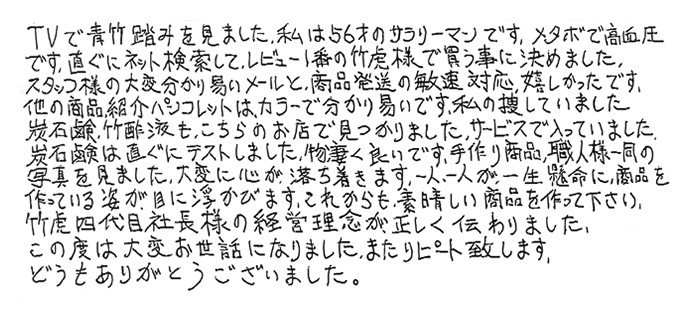 TVで青竹踏みを見ました、私は56才のサラリーマンです、メタボで高血圧
です、直ぐにネット検索して、レビュー1番の竹虎様で買う事に決めました、
スタッフ様の大変分かり易いメールと、商品発送の敏速対応、嬉しかったです、
他の商品紹介パンフレットは、カラーで分かり易いです、私の捜していました
炭石鹸、竹酢液も、こちらのお店で見つかりました、サービスで入っていました、
炭石鹸は直ぐにテストしました、物凄く良いです、手作り商品、職人様一同の
写真を見ました、大変に心が落ち着きます、一人、一人が一生懸命に、商品を
作っている姿が目に浮かびます、これからも、素晴しい商品を作って下さい、
竹虎四代目社長様の経営理念が正しく伝わりました、
この度は大変お世話になりました、またリピート致します、
どうもありがとうございました。